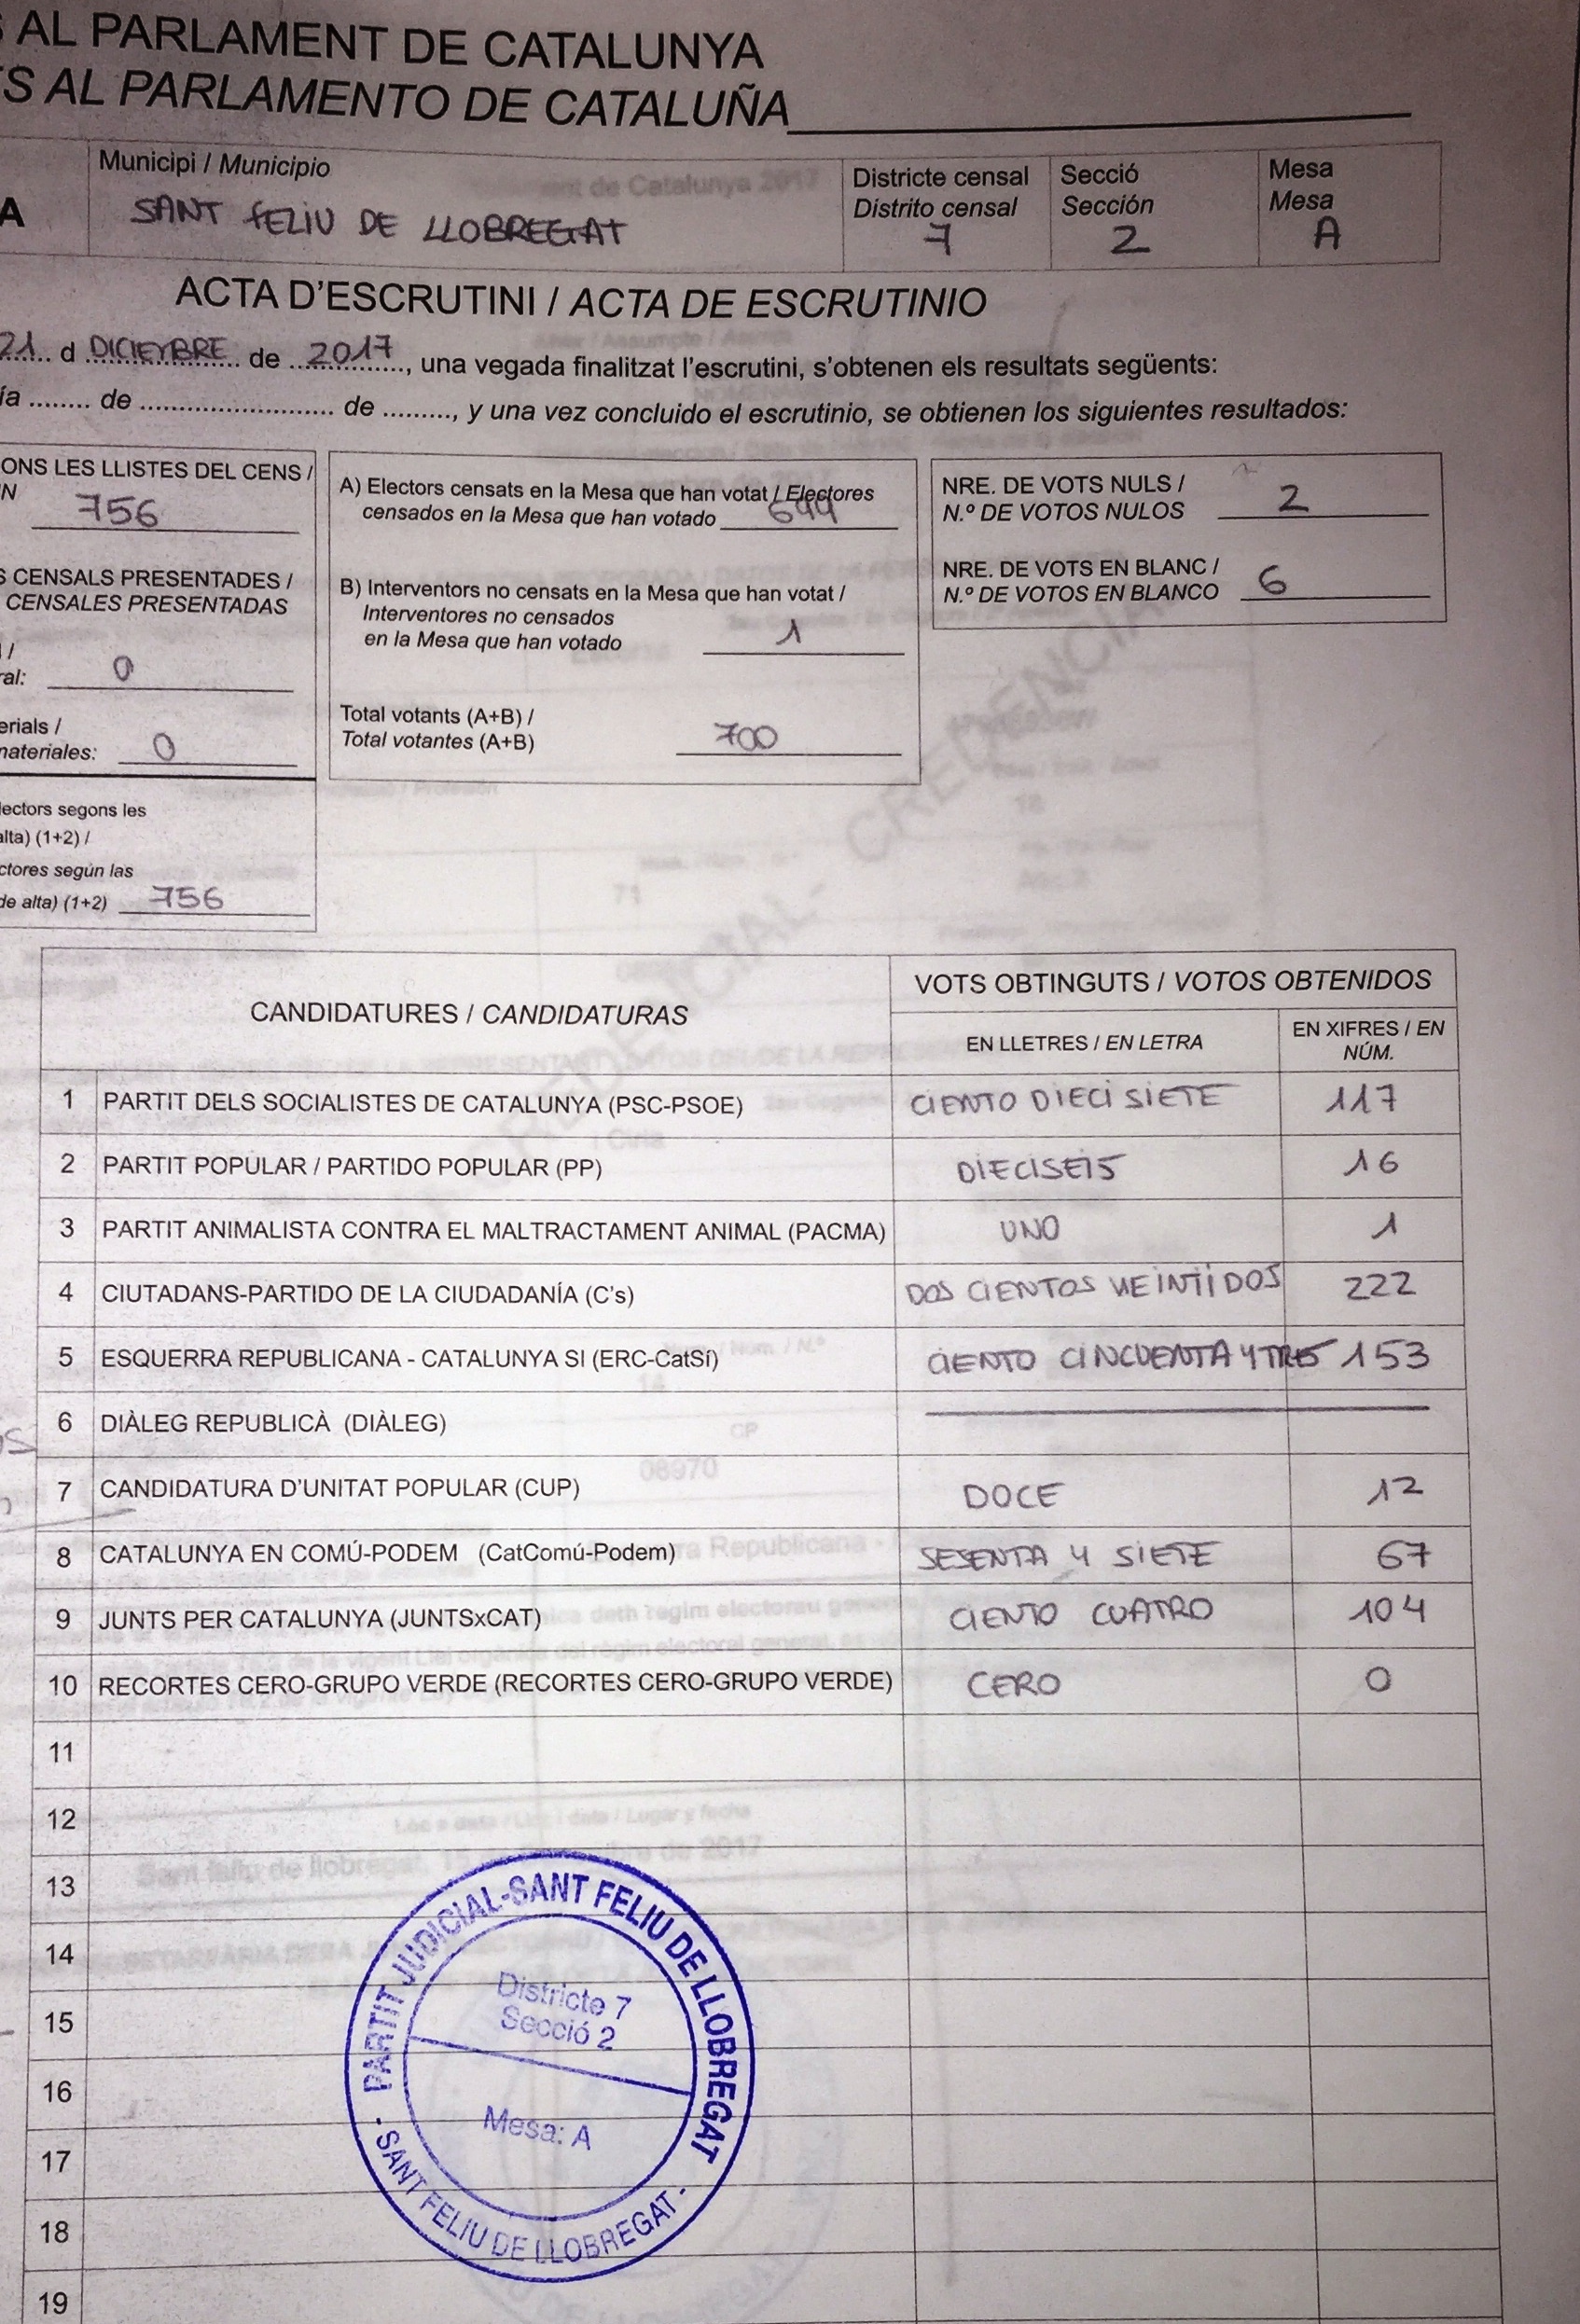 S AL PARLAMENT DE CATALUNYA
ES AL PARLAMENTO DE CATALUÑA
A
Municipi / Municipio
SANT FELIU DE LLOBREGAT
Districte censal
Distrito censal
7
Secció
Sección
2
Mesa
Mesa
A
ACTA D'ESCRUTINI / ACTA DE ESCRUTINIO
21 d DICIEMBRE de 2017, una vegada finalitzat l'escrutini, s'obtenen els resultats següents:
ía ........ de .......................... de ........., y una vez concluido el escrutinio, se obtienen los siguientes resultados:
ONS LES LLISTES DEL CENS /
N
756
S CENSALS PRESENTADES /
CENSALES PRESENTADAS
l /
ral: 0
erials /
materiales: 0
lectors segons les
alta) (1+2) /
ctores según las
de alta) (1+2) 756
A) Electors censats en la Mesa que han votat / Electores
censados en la Mesa que han votado 699
B) Interventors no censats en la Mesa que han votat /
Interventores no censados
en la Mesa que han votado 1
Total votants (A+B) /
Total votantes (A+B) 700
NRE. DE VOTS NULS /
N.º DE VOTOS NULOS 2
NRE. DE VOTS EN BLANC /
N.º DE VOTOS EN BLANCO 6
CANDIDATURES / CANDIDATURAS
VOTS OBTINGUTS / VOTOS OBTENIDOS
EN LLETRES / EN LETRA
EN XIFRES / EN
NÚM.
1 PARTIT DELS SOCIALISTES DE CATALUNYA (PSC-PSOE) CIENTO DIECISIETE 117
2 PARTIT POPULAR / PARTIDO POPULAR (PP) DIECISEIS 16
3 PARTIT ANIMALISTA CONTRA EL MALTRACTAMENT ANIMAL (PACMA) UNO 1
4 CIUTADANS-PARTIDO DE LA CIUDADANÍA (C's) DOS CIENTOS VEINTIDOS 222
5 ESQUERRA REPUBLICANA - CATALUNYA SI (ERC-CatSí) CIENTO CINCUENTA Y TRES 153
6 DIÀLEG REPUBLICÀ (DIÀLEG)
7 CANDIDATURA D'UNITAT POPULAR (CUP) DOCE 12
8 CATALUNYA EN COMÚ-PODEM (CatComú-Podem) SESENTA Y SIETE 67
9 JUNTS PER CATALUNYA (JUNTSxCAT) CIENTO CUATRO 104
10 RECORTES CERO-GRUPO VERDE (RECORTES CERO-GRUPO VERDE) CERO 0
11
12
13
14
15
16
17
18
19
PARTIT JUDICIAL-SANT FELIU DE LLOBREGAT
Districte 7
Secció 2
Mesa: A
- SANT FELIU DE LLOBREGAT -